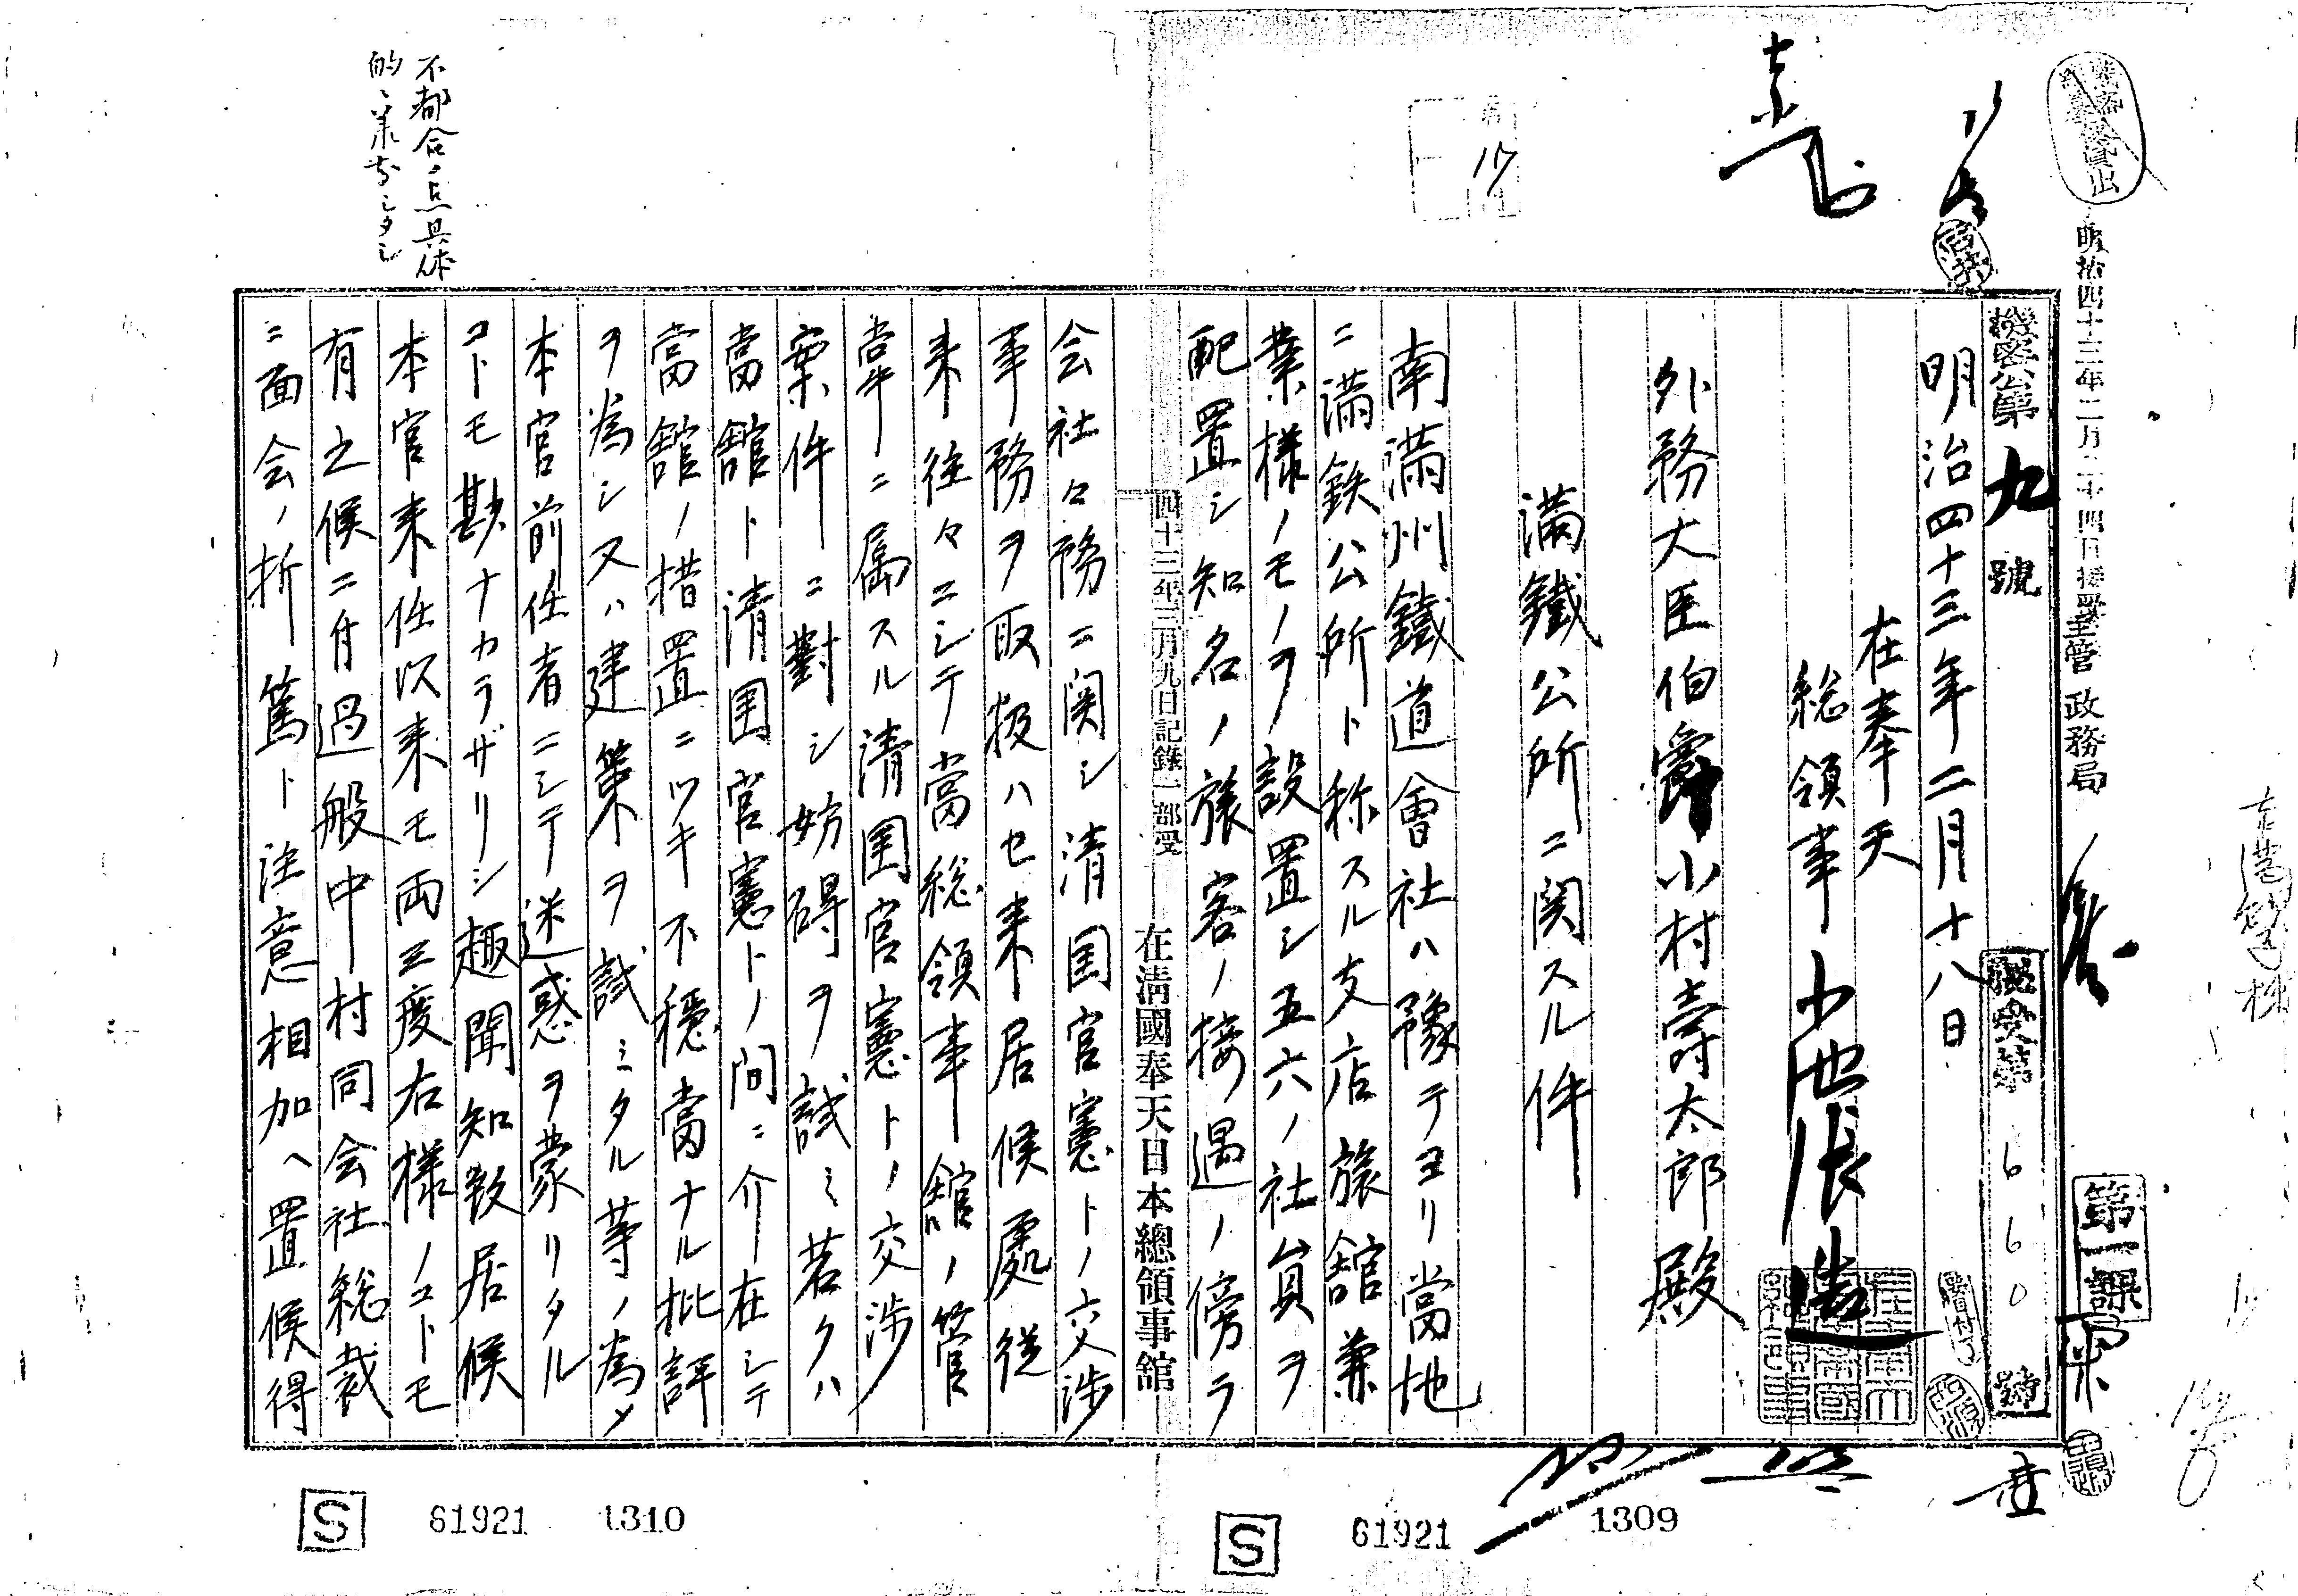 明治四十三年二月二十四日接受
主管 政務局
第一課
機密公第九號
機受第 660 號
明治四十三年二月十八日
在奉天
総領事 小池張造
外務大臣伯爵小村壽太郎殿
滿鐵公所ニ関スル件
南滿州鐵道會社ハ豫テヨリ當地
ニ滿鉄公所ト称スル支店旅舘兼
業様ノモノヲ設置シ五六ノ社員ヲ
配置シ知名ノ旅客ノ接遇ノ傍ラ
四十三年三月九日記錄一部受
在淸國奉天日本總領事館
会社々務ニ関シ清国官憲トノ交渉
事務ヲ取扱ハセ来居候處従
来往々ニシテ當総領事舘ノ管
掌ニ属スル清国官憲トノ交渉
案件ニ對シ妨碍ヲ試ミ若クハ
當舘ト清国官憲トノ間ニ介在シテ
當舘ノ措置ニツキ不穏當ナル批評
ヲ為シ又ハ建策ヲ試ミタル等ノ為メ
本官前任者ニシテ迷惑ヲ蒙リタル
コトモ尠ナカラザリシ趣聞知致居候
本官来任以来モ両三度右様ノコトモ
有之候ニ付過般中村同会社総裁
ニ面会ノ折篤ト注意相加ヘ置候得
不都合ノ点具体
的ニ承知シタシ
S 61921 1310
S 61921 1309